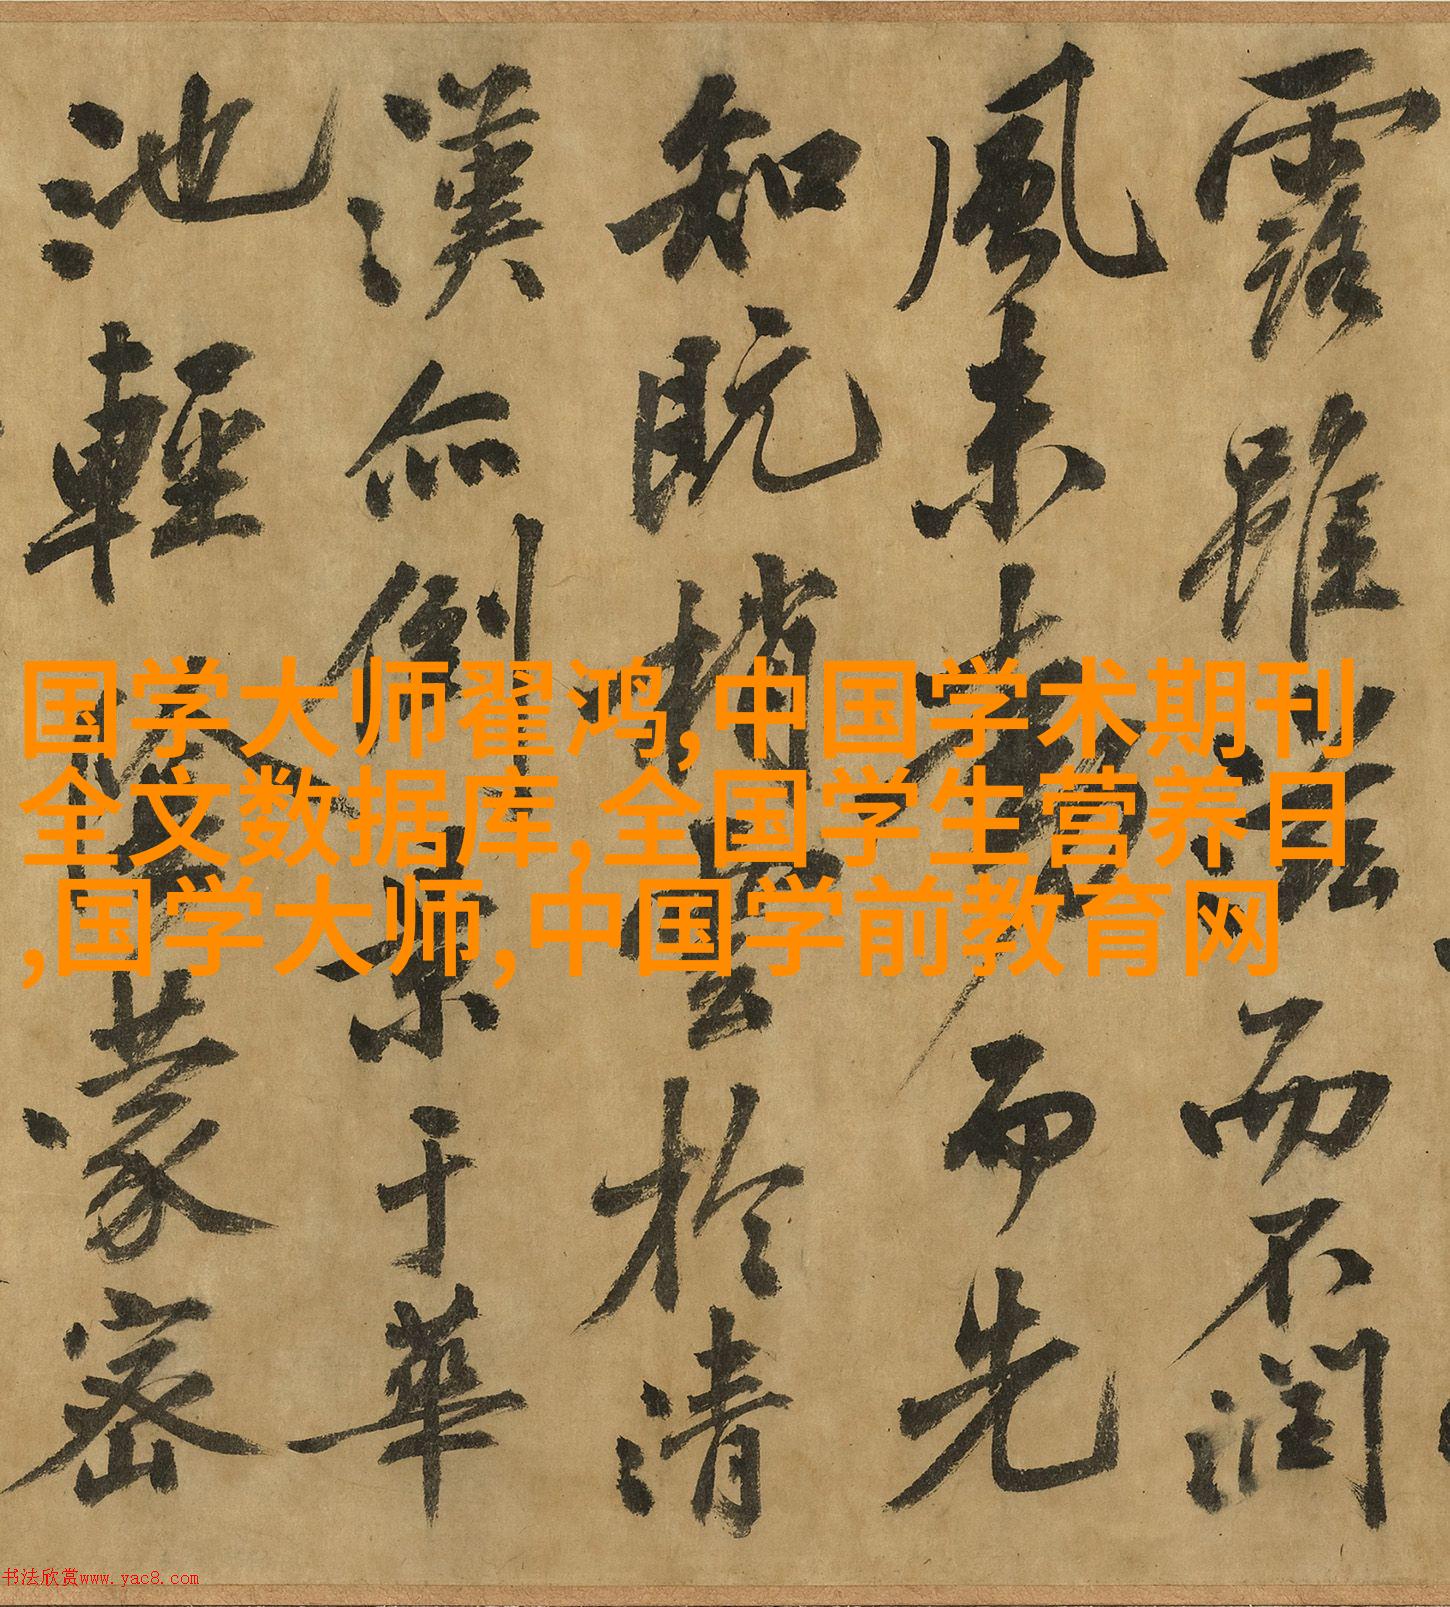 露雖而不潤
風未而先
知既梢雲於清
漢亦倒景于華
池輕蒙密
国学大师翟鸿,中国学术期刊
全文数据库,全国学生营养日
,国学大师,中国学前教育网
书法欣赏www.yac8.com